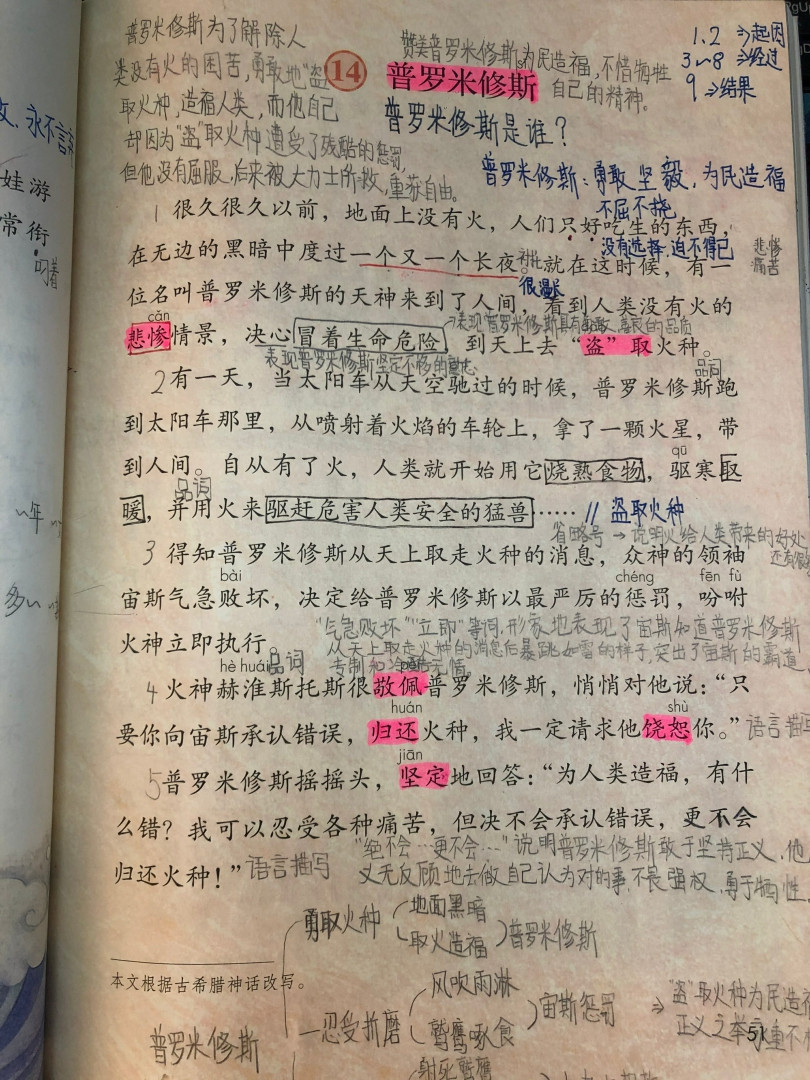 普罗米修斯为了解除人
类没有火的困苦，勇敢地“盗”
取火种，造福人类，而他自己
却因为“盗”取火种遭受了残酷的惩罚，
但他没有屈服，后来被大力士所救，重获自由。
赞美普罗米修斯为民造福，不惜牺牲
自己的精神。
1.2 ⇒起因
3~8 ⇒经过
9 ⇒结果
14 普罗米修斯
普罗米修斯是谁？
普罗米修斯：勇敢坚毅，为民造福
不屈不挠
永不言
娃游
常衔
叼着
1 很久很久以前，地面上没有火，人们只好吃生的东西，
没有选择，迫不得已
悲惨
痛苦
在无边的黑暗中度过一个又一个长夜。就在这时候，有一
很漫长
位名叫普罗米修斯的天神来到了人间，看到人类没有火的
cǎn
表现普罗米修斯具有勇敢、善良的品质
悲惨情景，决心冒着生命危险，到天上去“盗”取火种。
表现普罗米修斯坚定不移的意志
品词
2 有一天，当太阳车从天空驰过的时候，普罗米修斯跑
到太阳车那里，从喷射着火焰的车轮上，拿了一颗火星，带
qū
到人间。自从有了火，人类就开始用它烧熟食物，驱寒取
品词
暖，并用火来驱赶危害人类安全的猛兽…… // 盗取火种
省略号→说明火给人类带来的好处
还有很
3 得知普罗米修斯从天上取走火种的消息，众神的领袖
bài chéng fēn fù
宙斯气急败坏，决定给普罗米修斯以最严厉的惩罚，吩咐
“气急败坏”“立即”等词，形象地表现了宙斯知道普罗米修斯
火神立即执行。
从天上取走火种的消息后暴跳如雷的样子，突出了宙斯的霸道
专制和冷酷无情。
hè huái 品词 pèi
4 火神赫淮斯托斯很敬佩普罗米修斯，悄悄对他说：“只
huán shù
要你向宙斯承认错误，归还火种，我一定请求他饶恕你。”
语言描写
jiān
5 普罗米修斯摇摇头，坚定地回答：“为人类造福，有什
么错？我可以忍受各种痛苦，但决不会承认错误，更不会
归还火种！” 语言描写
“绝不会…更不会…”说明普罗米修斯敢于坚持正义，他
义无反顾地去做自己认为对的事，不畏强权，勇于牺牲
勇取火种
地面黑暗
取火造福
普罗米修斯
本文根据古希腊神话改写。
普罗米修斯
忍受折磨
风吹雨淋
鹫鹰啄食
宙斯惩罚
⇒“盗”取火种为民造福
正义之举
射死鹫鹰
51